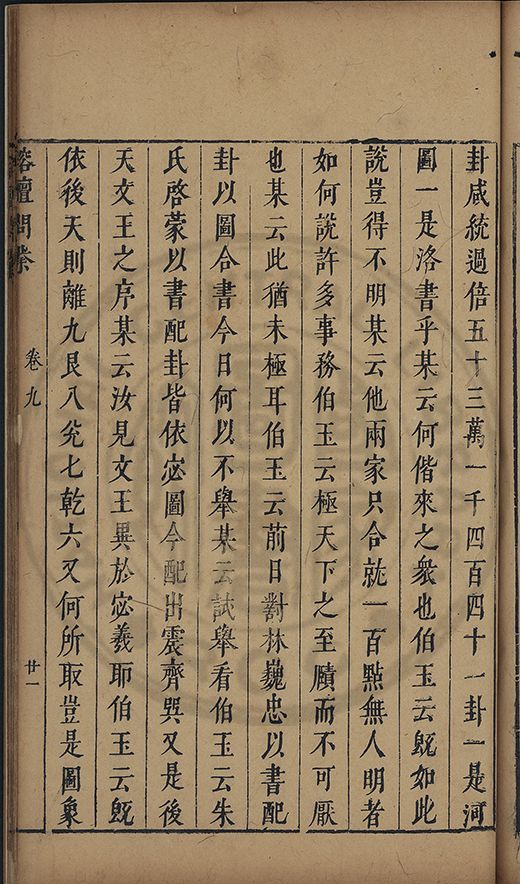 卦咸統過倍五十三萬一千四百四十一卦一是河
圖一是洛書乎某云何偕來之衆也伯玉云旣如此
說豈得不明某云他兩家只合就一百點無人明者
如何說許多事務伯玉云極天下之至賾而不可厭
也某云此猶未極耳伯玉云前日對林巍忠以書配
卦以圖合書今日何以不舉某云試舉看伯玉云朱
氏啓蒙以書配卦皆依宓圖今配出震齊巽又是後
天文王之序某云汝見文王異於宓羲耶伯玉云旣
依後天則離九艮八兊七乾六又何所取豈是圖象
榕壇問業
卷九
廿一